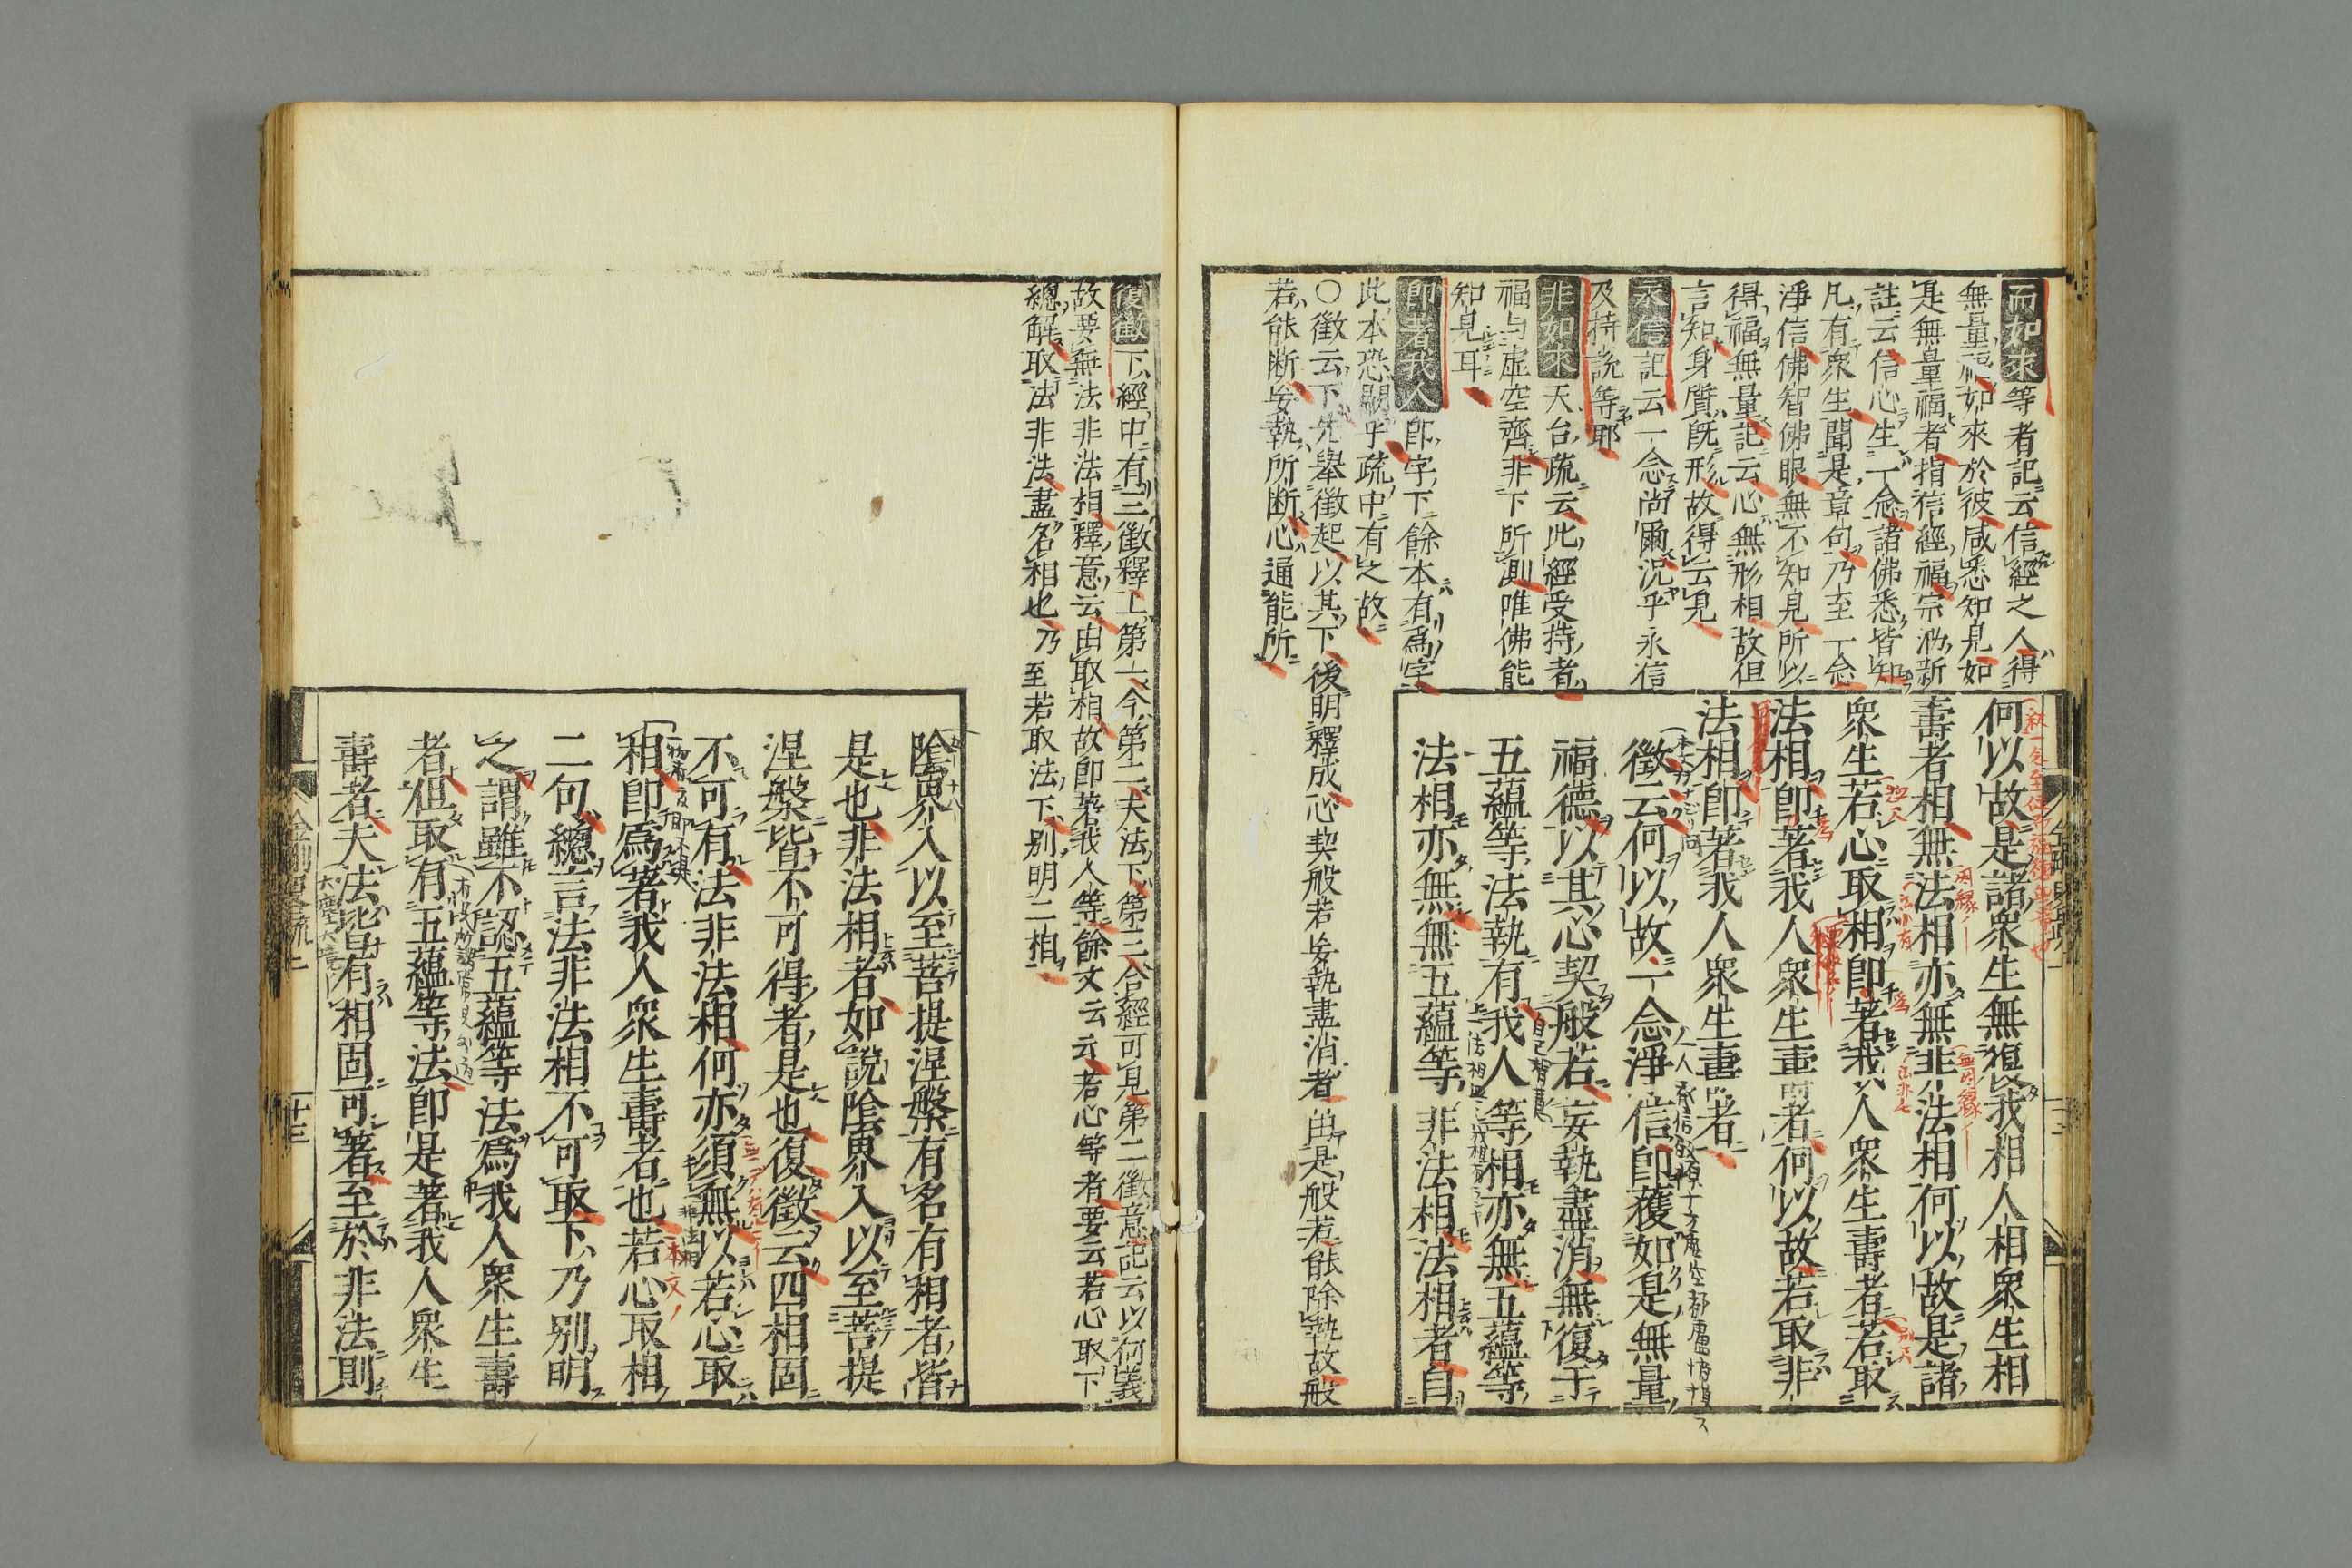 而如來等者記云信經之人得
無量福如來於彼咸悉知見如
是無量福者指信經福宗泐新
註云信心生一念諸佛悉皆知
凡有衆生聞是章句乃至一念
淨信佛智佛眼無不知見所以
得福無量記云心無形相故但
言知身質既形故得云見
永信記云一念尚爾況乎永信
及持說等耶
非如來天台疏云此經受持者
福与虛空齊非下所測唯佛能
知見耳
即者我人即字下餘本有爲字
此本恐闕乎疏中有之故
○徵云下先舉徵起以其下後明釋成心契般若妄執盡消者由是般若能除執故般
若能斷妄執所斷心通能所
何以故是諸衆生無復我相人相衆生相
壽者相無法相亦無非法相何以故是諸
衆生若心取相即著我人衆生壽者若取
法相即著我人衆生壽者何以故若取非
法相即著我人衆生壽者
徵云何以故一念淨信即蒦如是無量
福德以其心契般若妄執盡消無復于
五蘊等法執有我人等相亦無五蘊等
法相亦無無五蘊等非法相法相者自
復徵下經中有三徵釋上第一今第二夫法下第三合經可見第二徵意記云以何義
故要無法非法相釋意云由取相故即著我人等餘文云云若心等者要云若心取下
總解取法非法盡名相也乃至若取法下別明二相
陰界入以至菩提涅槃有名有相者皆
是也非法相者如說陰界入以至菩提
涅槃皆不可得者是也復徵云四相固
不可有法非法相何亦須無以若心取
相即爲著我人衆生壽者也若心取相
二句總言法非法相不可取下乃別明
之謂雖不認五蘊等法爲我人衆生壽
者但取有五蘊等法即是著我人衆生
壽者夫法皆有相固可著至於非法則
十三